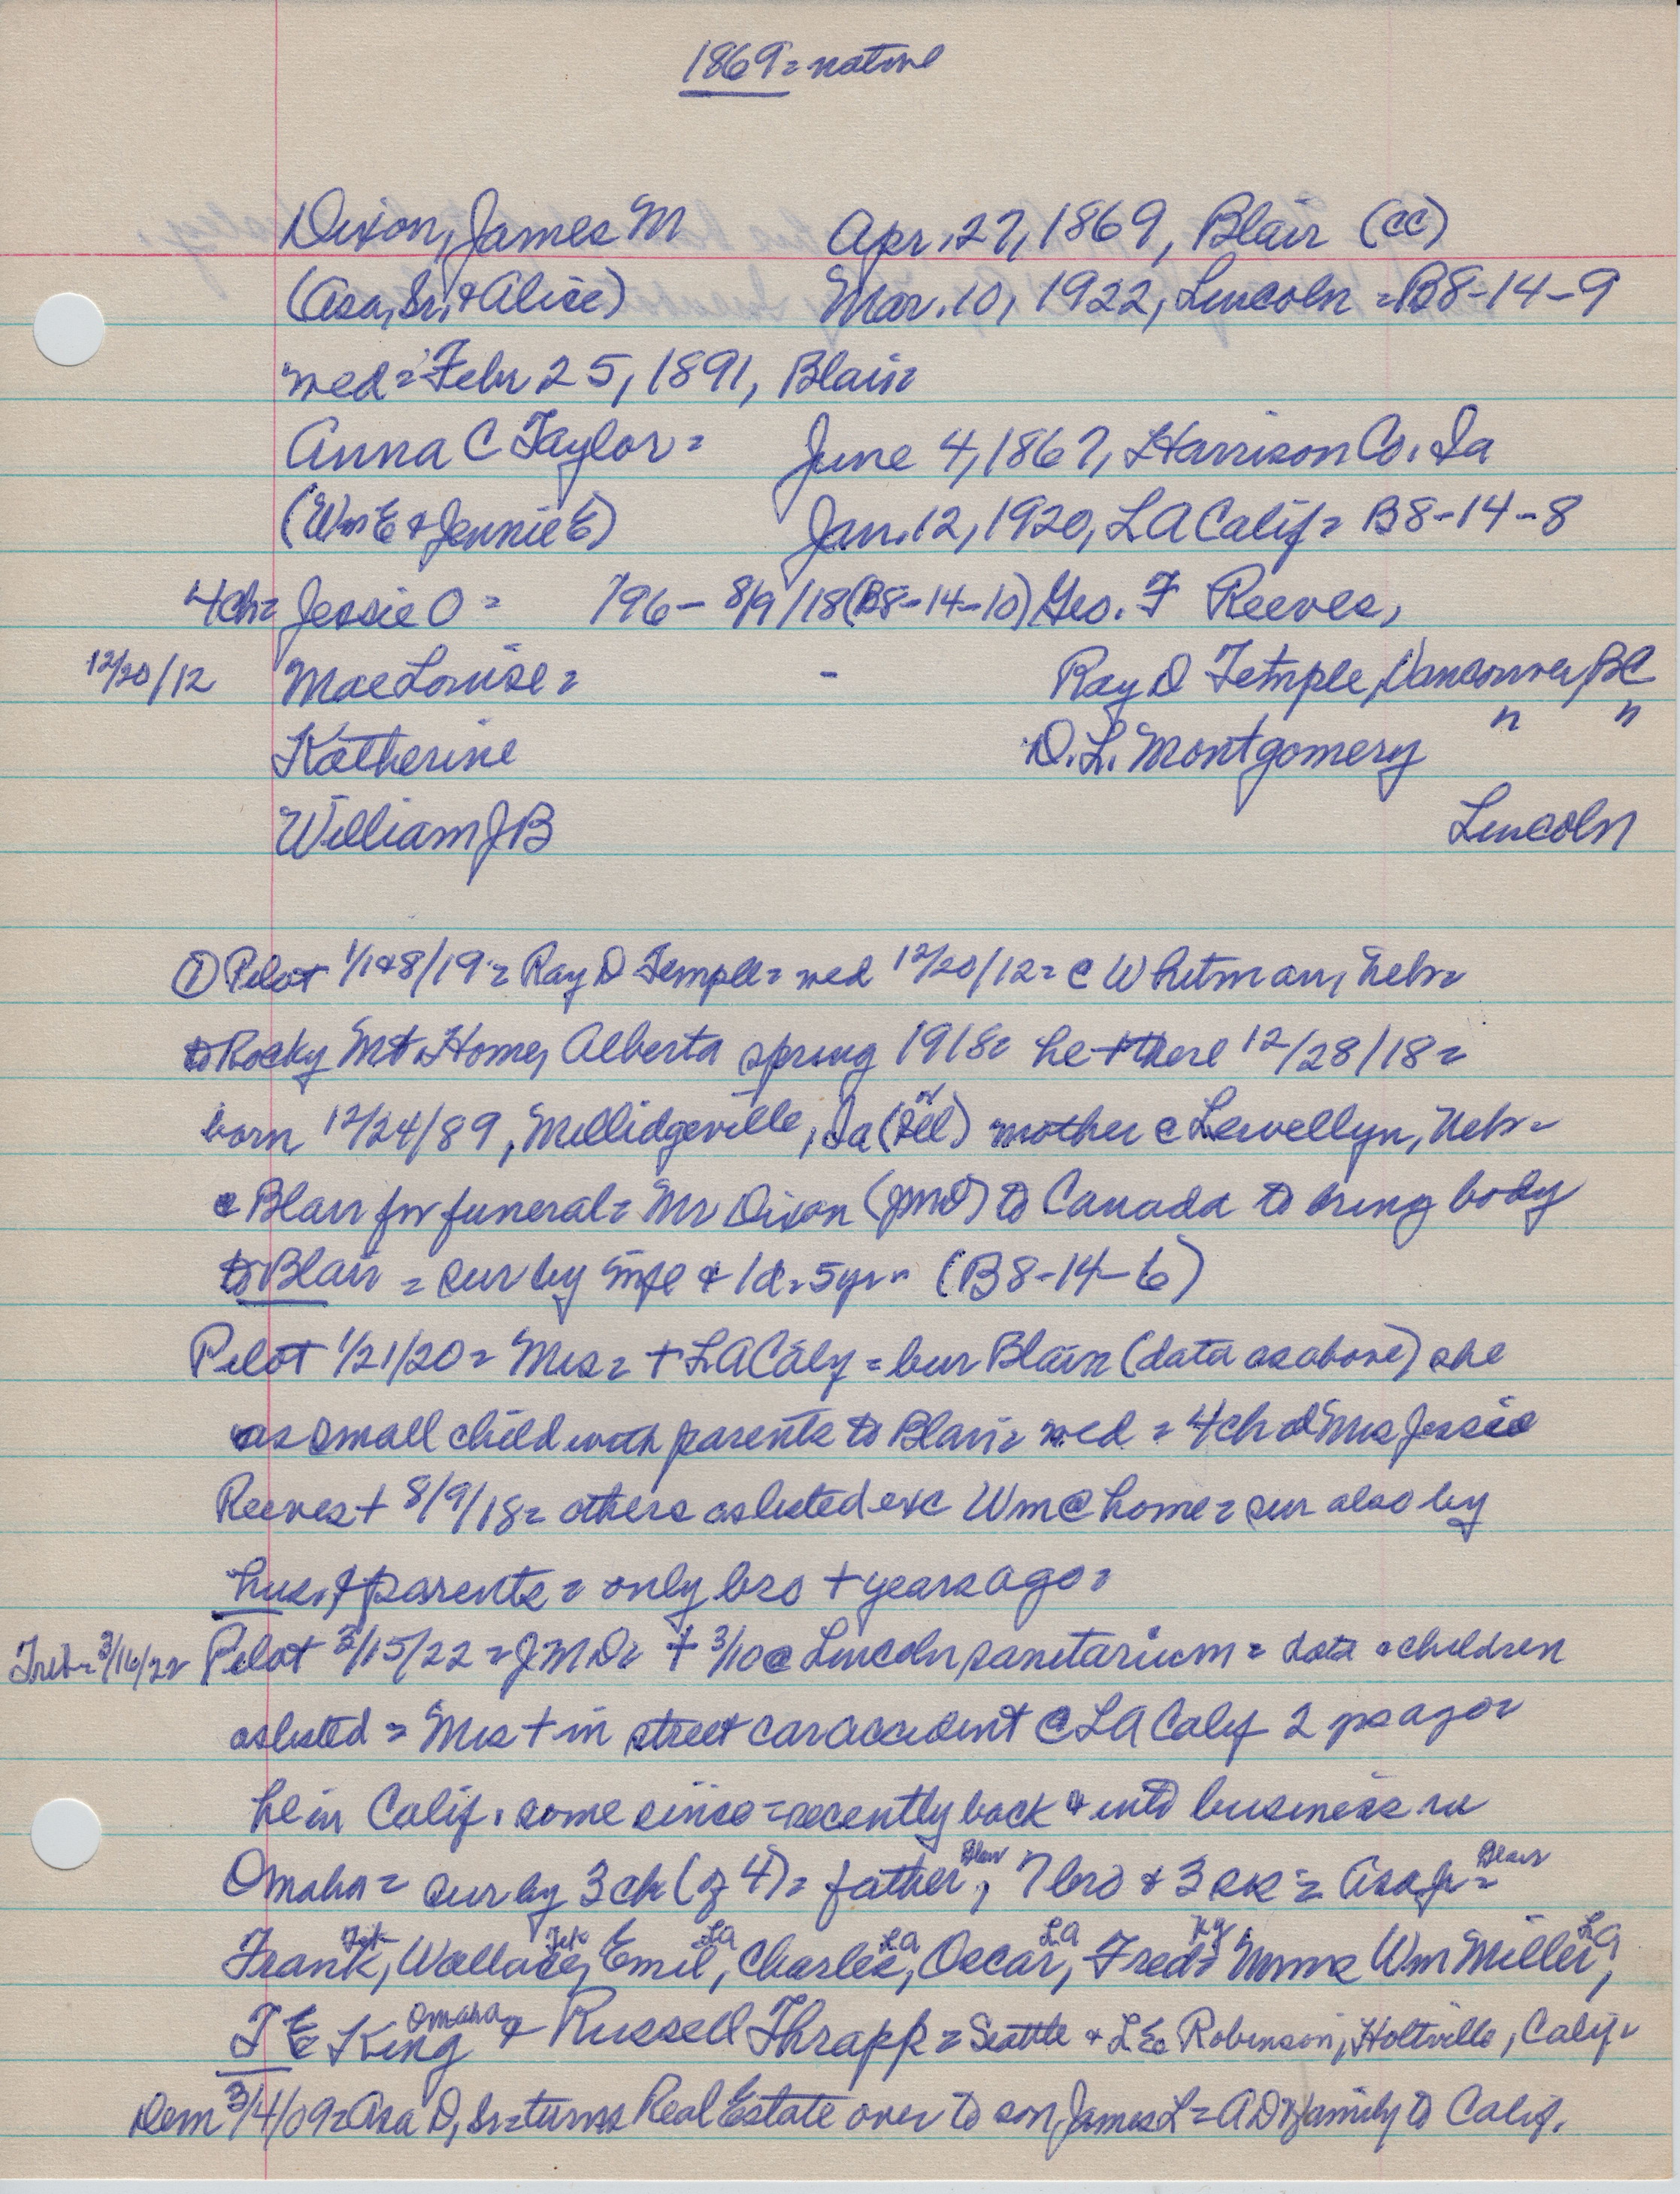 1869 = native
Dixon, James M Apr. 27, 1869, Blair (CC)
(Asa, Sr. & Alice) Mar. 10, 1922, Lincoln = B8-14-9
wed = Febr 25, 1891, Blair =
Anna C Taylor = June 4, 1867, Harrison Co. Ia
(Wm E & Jennie E) Jan. 12, 1920, LA Calif = B8-14-8
4ch = Jessie O = /96 - 8/9/18 (B8-14-10) Geo. F Reeves,
12/20/12 Mae Louise = - Ray D Temple, Vancouver, BC
Katherine D. L. Montgomery " "
William J B Lincoln
① Pilot 1/1&8/19 = Ray D Temple = wed 12/20/12 = @ Whitman, Nebr =
to Rocky Mt. Home, Alberta spring 1918 = he + there 12/28/18 =
born 12/24/89, Millidgeville, Ia (Ill) mother @ Lewellyn, Nebr -
@ Blair for funeral = Mr Dixon (JMD) to Canada to bring body
to Blair = sur by wife & 1d = 5yr = (B8-14-6)
Pilot 1/21/20 = Mrs = + LA Calif = bur Blair (data as above) she
as small child with parents to Blair = wed = 4ch d Mrs Jessie
Reeves + 8/9/18 = others as listed exc Wm @ home = sur also by
hus. & parents = only bro + years ago =
Trib = 3/16/22 Pilot 3/15/22 = JMD = + 3/10 @ Lincoln sanitarium = data & children
as listed = Mrs + in street car accident @ LA Calif 2 yrs ago =
he in Calif. some since = recently back & into business in
Omaha = sur by 3 ch (of 4) = father Blair, 7 bro & 3 sis = Asa Jr = Blair
Frank, Wallace, Emil LA, Charles LA, Oscar LA, Fred = Mmes Wm Miller LA,
T E King Omaha & Russell Thrapp = Seattle & L E Robinson, Holtville, Calif =
Dem 3/4/09 = Asa D, Sr = turns Real Estate over to son James L = AD & family to Calif.